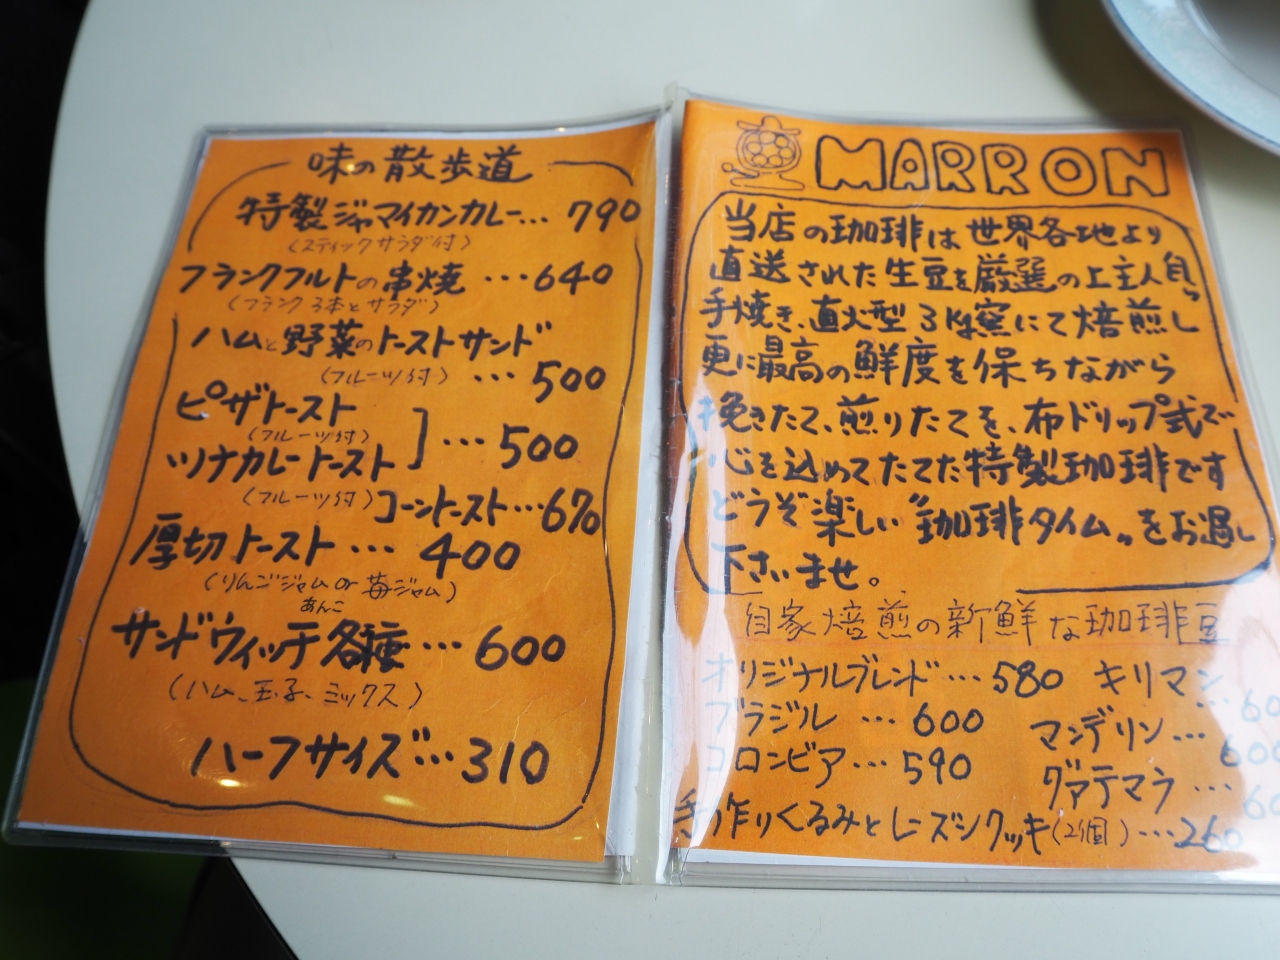 味の散歩道
特製ジャマイカンカレー… 790
(スティックサラダ付)
フランクフルトの串焼 …640
(フランク3本とサラダ)
ハムと野菜のトーストサンド
(フルーツ付) … 500
ピザトースト
(フルーツ付)
ツナカレートースト ]… 500
(フルーツ付) コーントースト…670
厚切トースト… 400
(りんごジャム or 苺ジャム)
あんこ
サンドウィッチ各種… 600
(ハム、玉子、ミックス)
ハーフサイズ…310
MARRON
当店の珈琲は世界各地より
直送された生豆を厳選の上主人自ら
手焼き、直火型3Kg窯にて焙煎し
更に最高の鮮度を保ちながら
挽きたて、煎りたてを、布ドリップ式で
心を込めてたてた特製珈琲です
どうぞ楽しい"珈琲タイム"をお過し
下さいませ。
自家焙煎の新鮮な珈琲豆
オリジナルブレンド…580 キリマン…
ブラジル …600 マンデリン…600
コロンビア…590 グァテマラ…
手作りくるみとレーズンクッキー(2個)…260